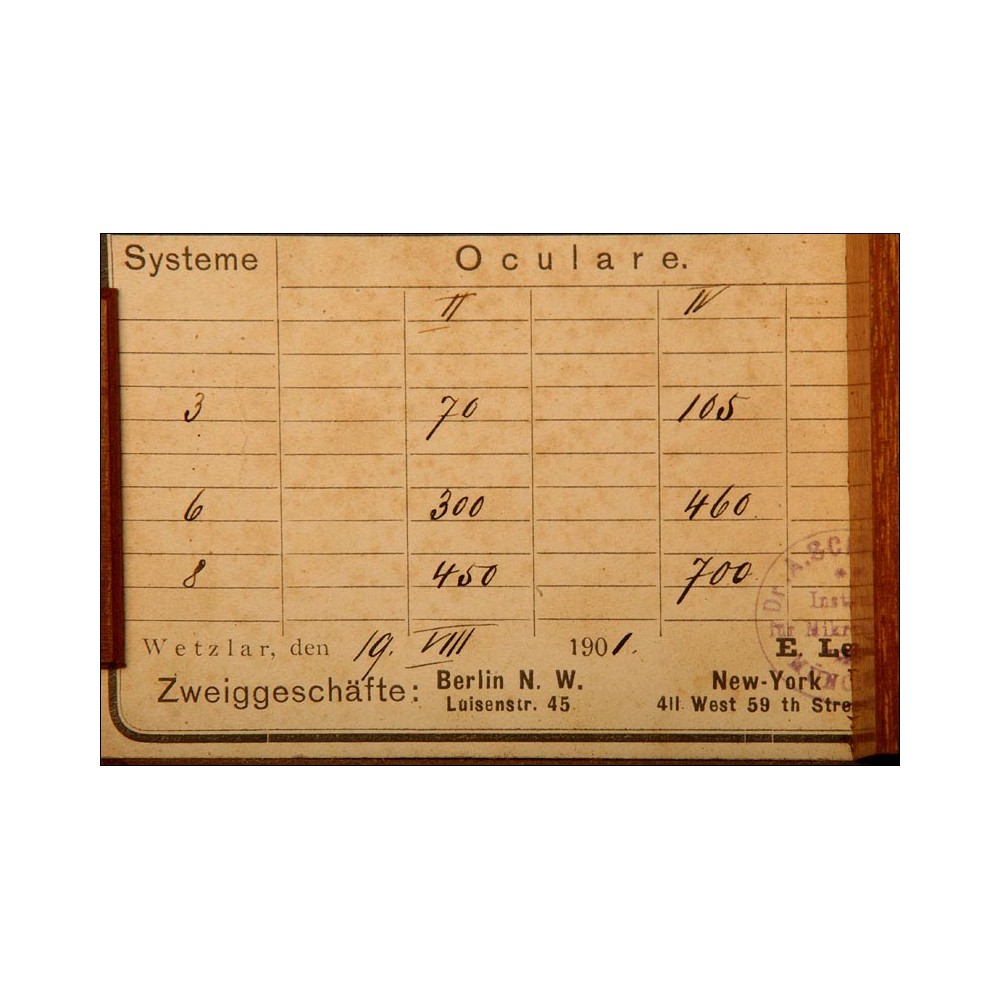 Systeme Oculare.
II IV
3 70 105
6 300 460
8 450 700
Wetzlar, den 19. VIII 1901. E. Le
Zweiggeschäfte: Berlin N. W. New-York
Luisenstr. 45 411 West 59 th Stre
Dr. A. SC
Inst
für Mikr